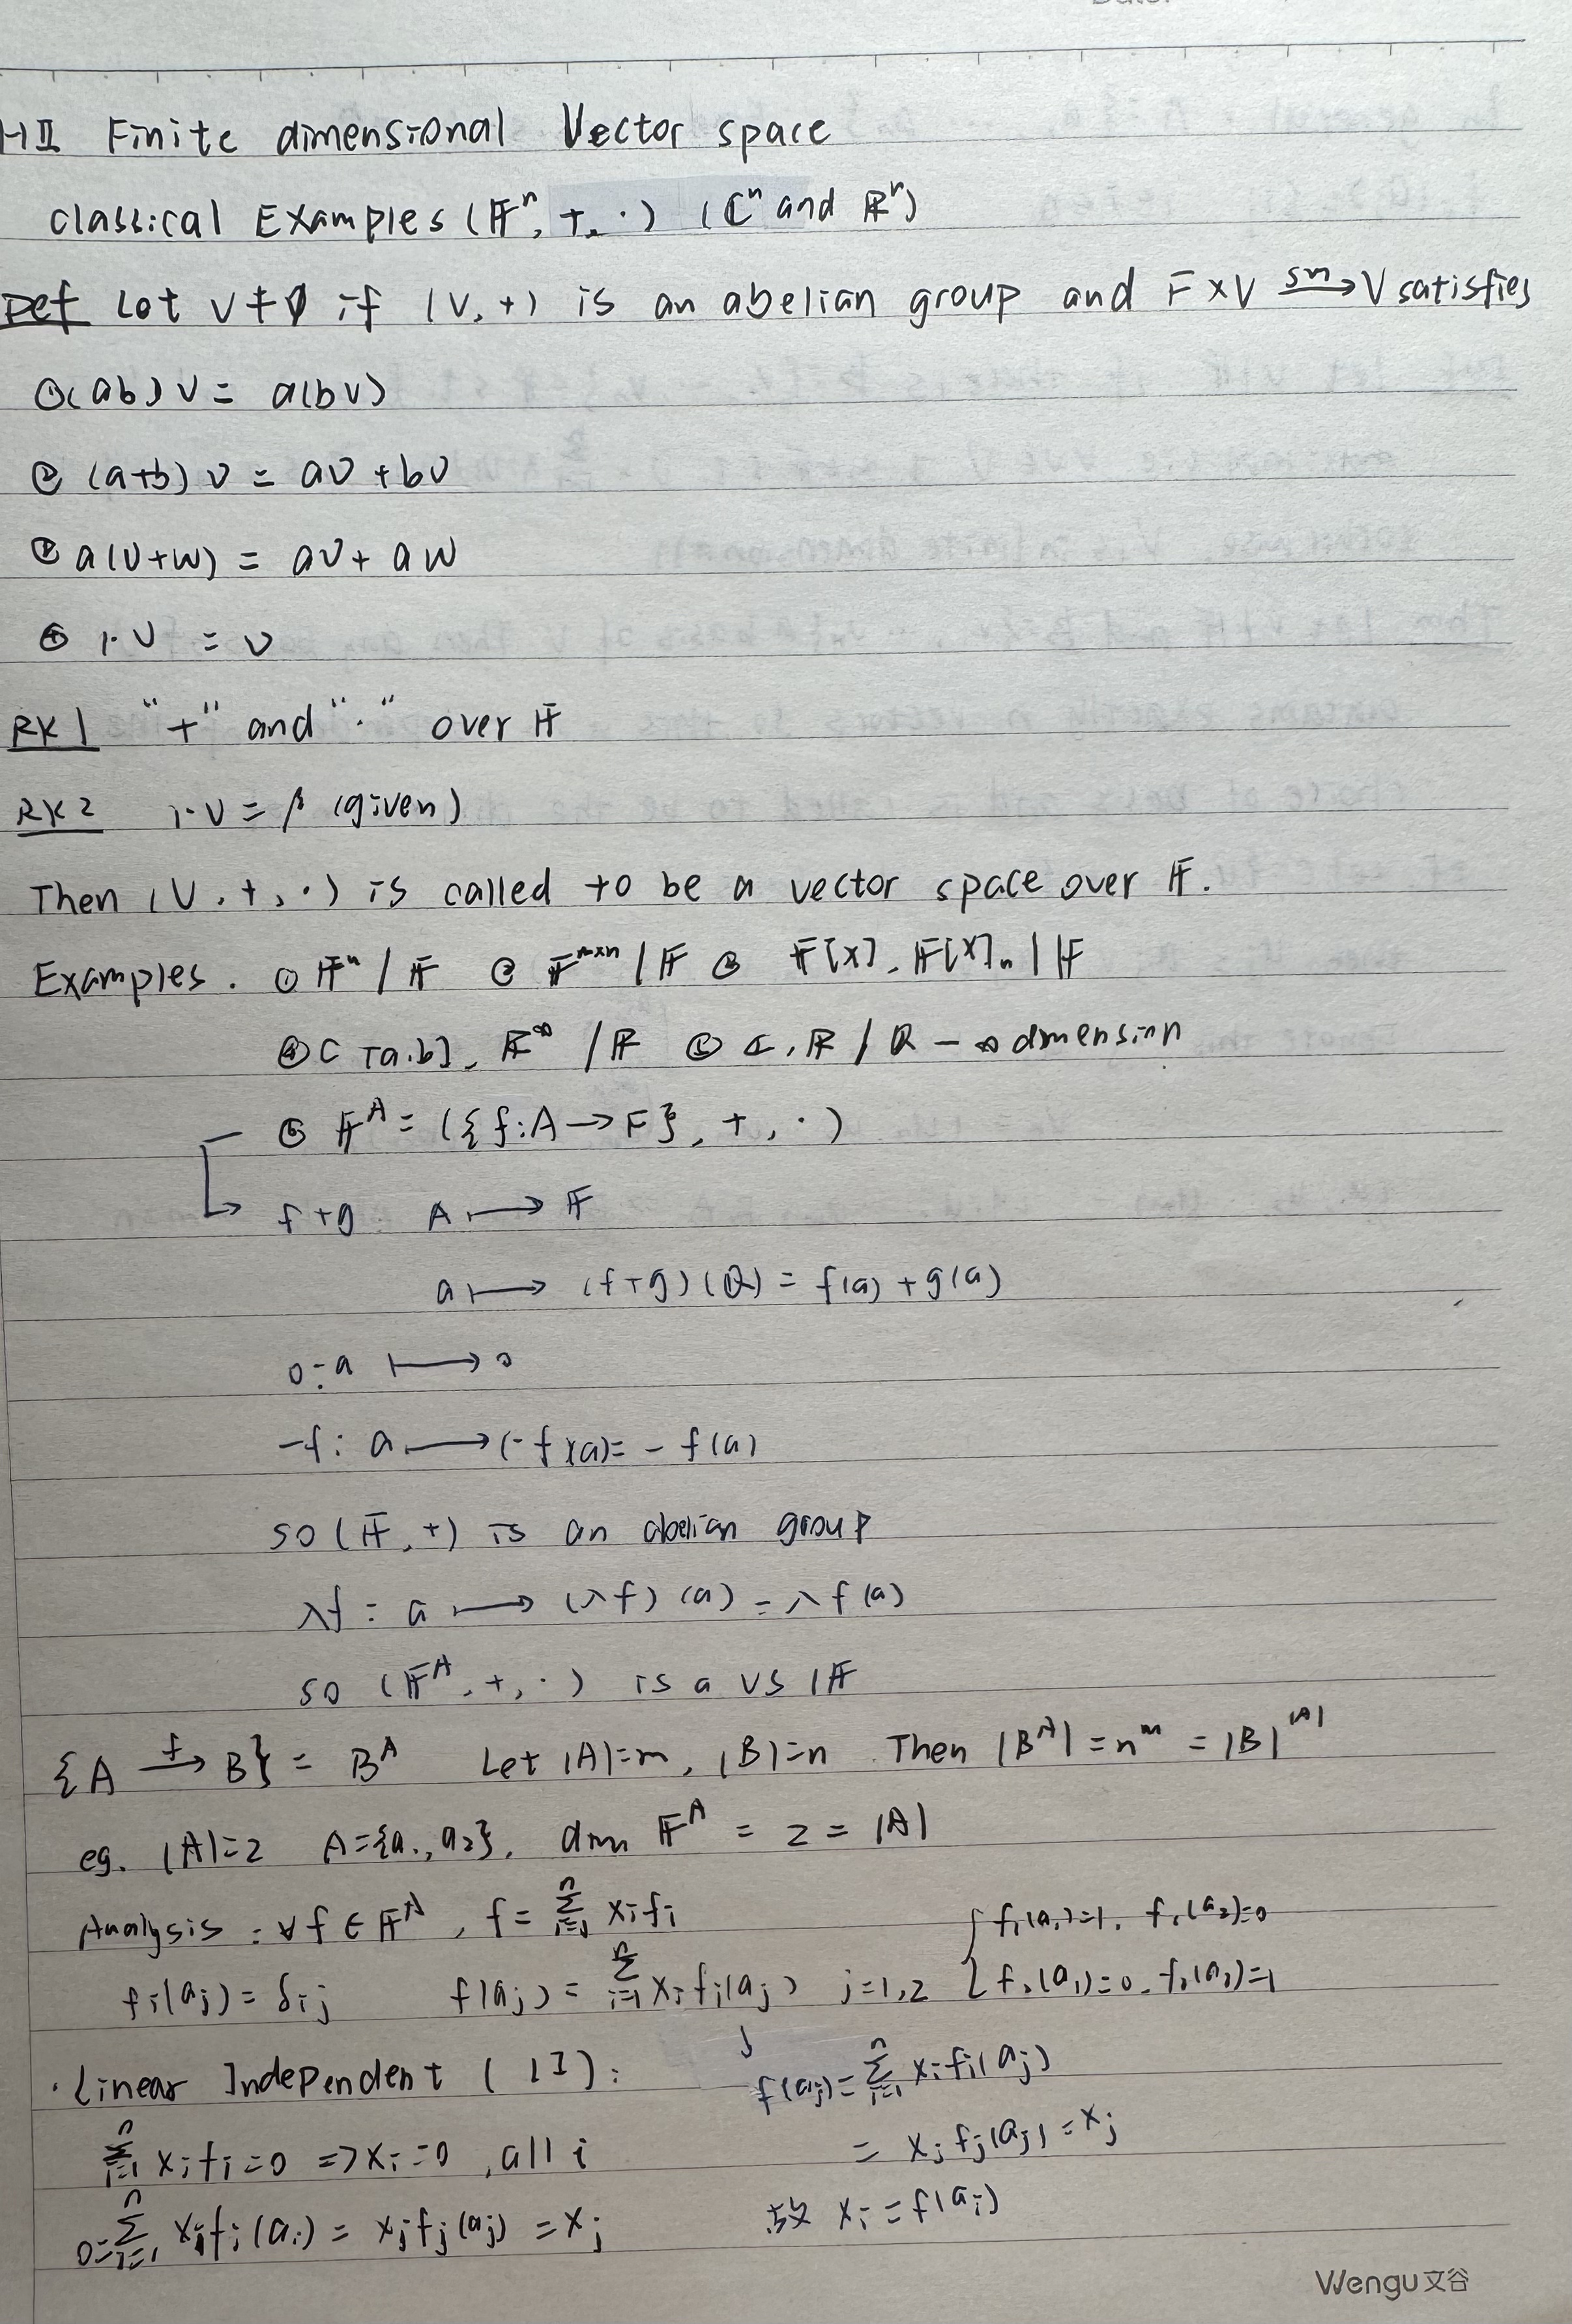 HII Finite dimensional Vector space
classical Examples (𝔽ⁿ, +, ·) (ℂⁿ and ℝⁿ)
Def Let V ≠ ∅ if (V, +) is an abelian group and F × V →^{sm} V satisfies
① (ab)v = a(bv)
② (a+b)v = av + bv
② a(v+w) = av + aw
④ 1·v = v
RK1 "+" and "·" over 𝔽
RK2 1·v = β (given)
Then (V, +, ·) is called to be a vector space over 𝔽.
Examples. ① 𝔽ⁿ / 𝔽 ② 𝔽^{m×n} / 𝔽 ③ 𝔽[x], 𝔽[x]ₙ | 𝔽
④ C[a.b], ℝ^∞ / ℝ ⑤ ℂ, ℝ / ℚ — ∞ dimension
⑥ 𝔽^A = ({f: A → F}, +, ·)
f+g: A ⟼ 𝔽
a ⟼ (f+g)(a) = f(a) + g(a)
0: a ⟼ 0
-f: a ⟼ (-f)(a) = -f(a)
so (𝔽, +) is an abelian group
λf: a ⟼ (λf)(a) = λf(a)
so (𝔽^A, +, ·) is a VS / 𝔽
{A →^{f} B} = B^A Let |A|=m, |B|=n. Then |B^A| = n^m = |B|^{|A|}
eg. |A|=2 A={a₁, a₂}, dim 𝔽^A = 2 = |A|
Analysis: ∀f ∈ 𝔽^A, f = ∑_{i=1}^{n} xᵢfᵢ { f₁(a₁)=1, f₁(a₂)=0
fᵢ(aⱼ) = δᵢⱼ f(aⱼ) = ∑_{i=1}^{n} xᵢfᵢ(aⱼ) j=1,2 f₂(a₁)=0, f₂(a₂)=1
· Linear Independent (LI): f(aⱼ) = ∑_{i=1}^{n} xᵢfᵢ(aⱼ)
∑_{i=1}^{n} xᵢfᵢ = 0 ⇒ xᵢ = 0, all i = xⱼfⱼ(aⱼ) = xⱼ
0 = ∑_{i=1}^{n} xᵢfᵢ(aᵢ) = xⱼfⱼ(aⱼ) = xⱼ 故 xᵢ = f(aᵢ)
Wengu文谷